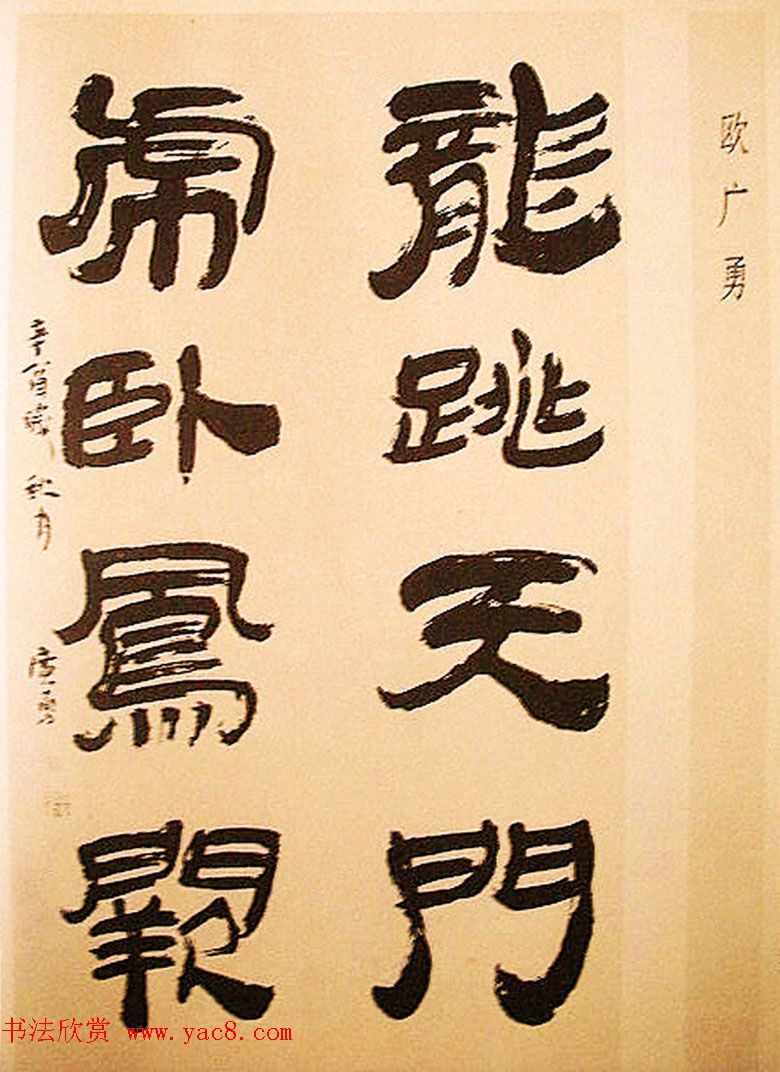 欧广勇
龍跳天門
虎卧鳳闕
辛酉 秋月
书法欣赏 www.yac8.com